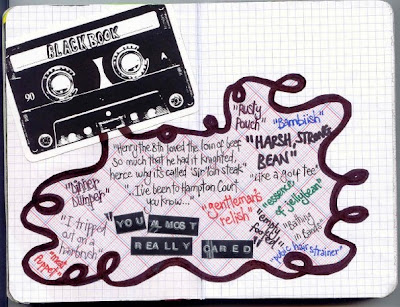 BLACK BOOK
90
A
"Rusty
Pouch"
"Bambiish"
"HARSH, STRONG
BEAN"
"Henry the 8th loved the loin of beef
so much that he had it knighted,
hence why it's called 'sir'-loin steak"
"I've been to Hampton Court
you know..."
"Like a golf tee"
"gentleman's
relish"
"essence of
jellybean"
"empty
footed"
"Bathing
in Beads"
"pubic hair strainer"
"Dinner
Number"
"I tripped
out on a
hairbrush"
"meat
Puppet"
YOU ALMOST
REALLY CARED